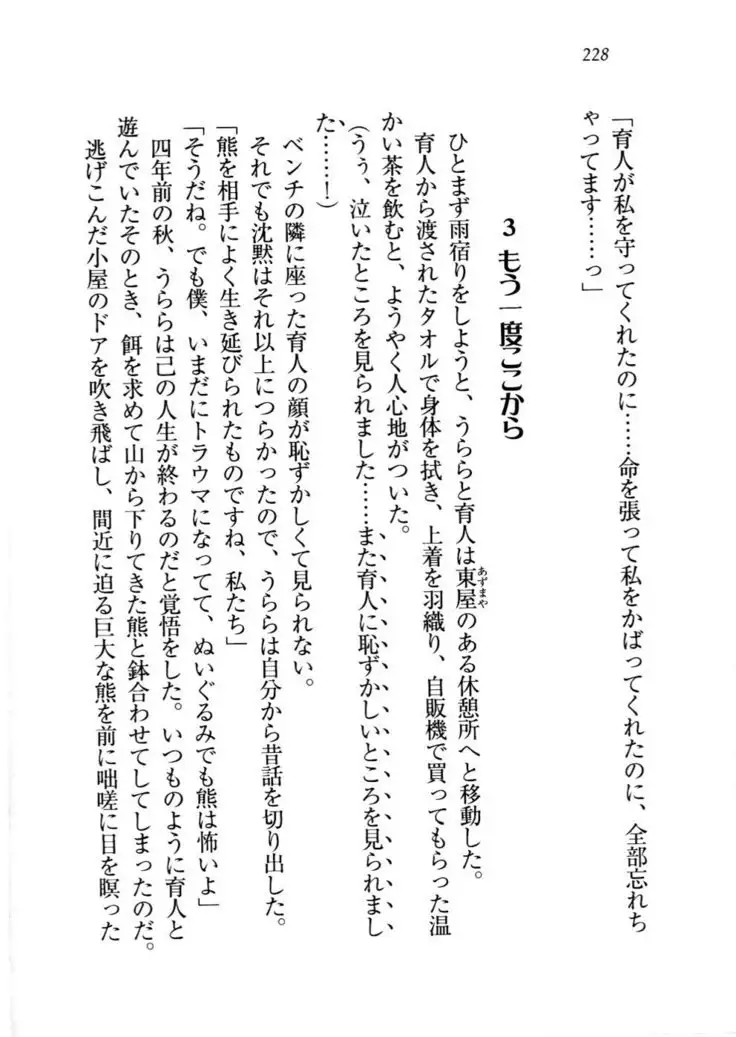 228
「育人が私を守ってくれたのに……命を張って私をかばってくれたのに、全部忘れち
ゃってます……っ」
3 もう一度ここから
ひとまず雨宿りをしようと、うららと育人は東屋のある休憩所へと移動した。
あずまや
育人から渡されたタオルで身体を拭き、上着を羽織り、自販機で買ってもらった温
かい茶を飲むと、ようやく人心地がついた。
(うぅ、泣いたところを見られました……また育人に恥ずかしいところを見られまし
た……！)
ベンチの隣に座った育人の顔が恥ずかしくて見られない。
それでも沈黙はそれ以上につらかったので、うららは自分から昔話を切り出した。
「熊を相手によく生き延びられたものですね、私たち」
「そうだね。でも僕、いまだにトラウマになってて、ぬいぐるみでも熊は怖いよ」
四年前の秋、うららは己の人生が終わるのだと覚悟をした。いつものように育人と
遊んでいたそのとき、餌を求めて山から下りてきた熊と鉢合わせてしてしまったのだ。
逃げこんだ小屋のドアを吹き飛ばし、間近に迫る巨大な熊を前に咄嗟に目を瞑った